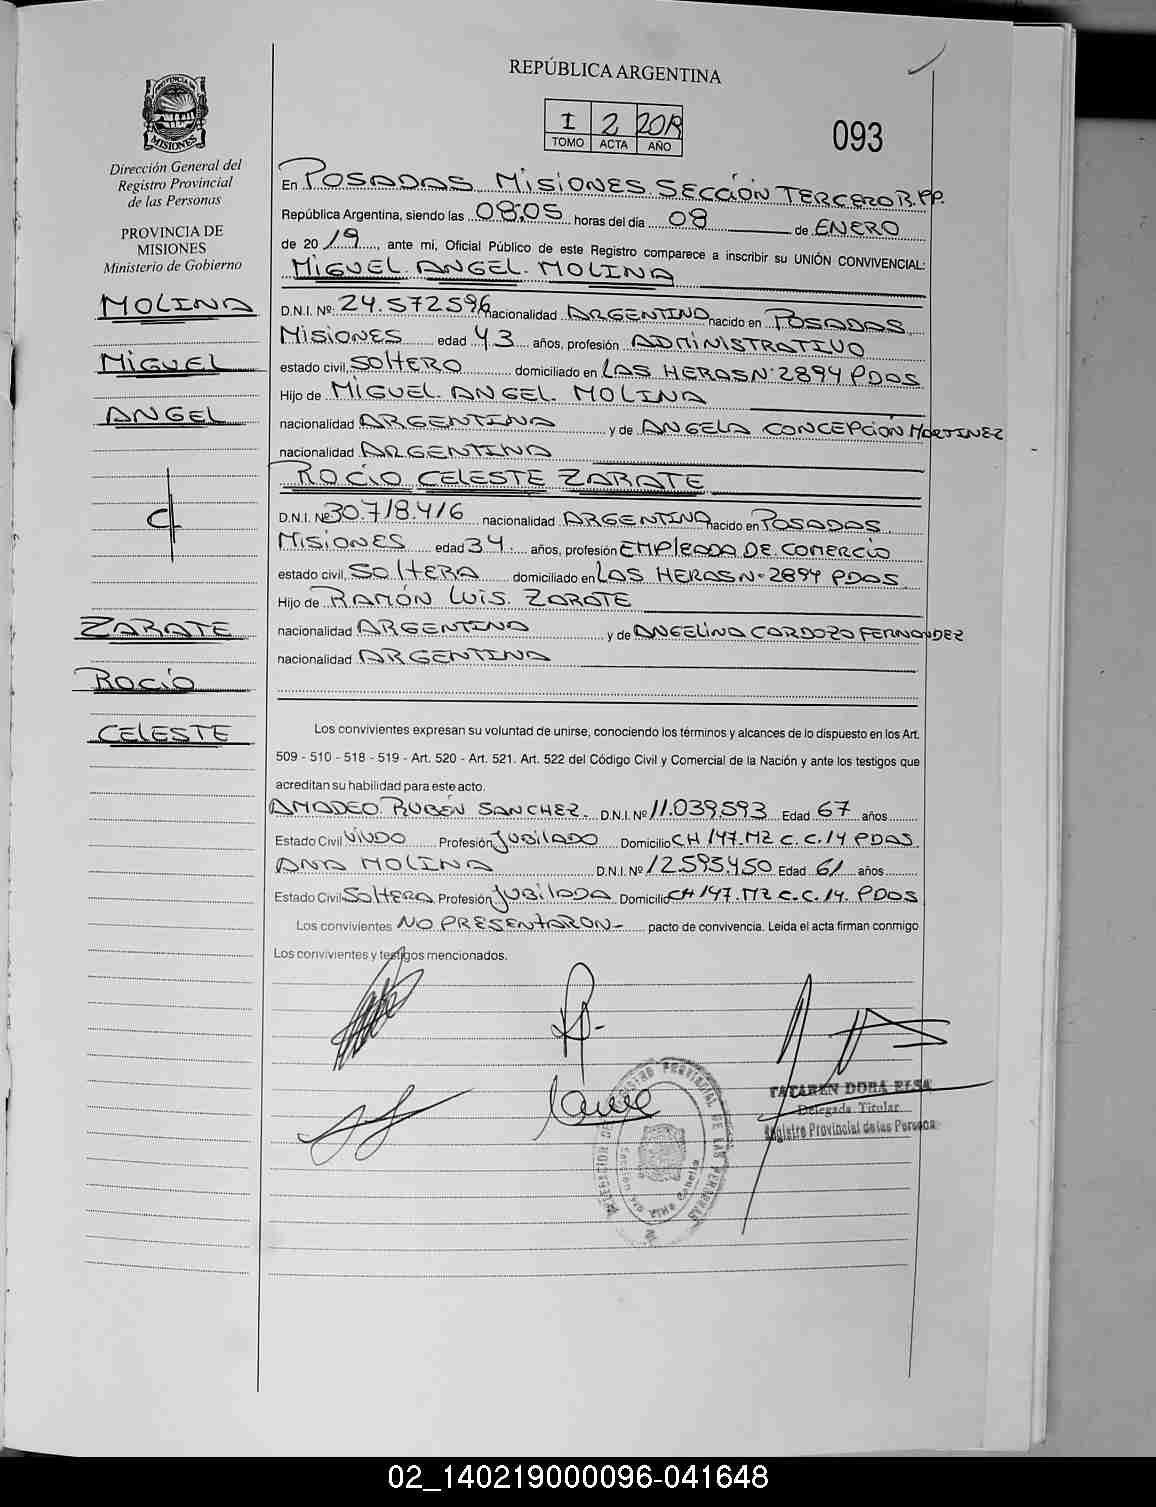 REPÚBLICA ARGENTINA
I 2 2019
TOMO ACTA AÑO
093
PROVINCIA DE
MISIONES
Dirección General del
Registro Provincial
de las Personas
PROVINCIA DE
MISIONES
Ministerio de Gobierno
MOLINA
MIGUEL
ANGEL
ZARATE
ROCIO
CELESTE
En POSADAS MISIONES SECCIÓN TERCERO R.PP.
República Argentina, siendo las 08:05 horas del día 08 de ENERO
de 2019, ante mí, Oficial Público de este Registro comparece a inscribir su UNIÓN CONVIVENCIAL:
MIGUEL ANGEL MOLINA
D.N.I. Nº: 24.572.596 nacionalidad ARGENTINA nacido en POSADAS
MISIONES edad 43 años, profesión ADMINISTRATIVO
estado civil, SOLTERO domiciliado en LAS HERAS Nº 2894 PDAS
Hijo de MIGUEL ANGEL MOLINA
nacionalidad ARGENTINA y de ANGELA CONCEPCIÓN MARTINEZ
nacionalidad ARGENTINA
ROCIO CELESTE ZARATE
D.N.I. Nº 30.718.416 nacionalidad ARGENTINA nacido en POSADAS
MISIONES edad 34 años, profesión EMPLEADA DE COMERCIO
estado civil, SOLTERA domiciliado en LAS HERAS Nº 2894 PDAS
Hijo de RAMÓN LUIS ZARATE
nacionalidad ARGENTINA y de ANGELINA CARDOZO FERNANDEZ
nacionalidad ARGENTINA
Los convivientes expresan su voluntad de unirse, conociendo los términos y alcances de lo dispuesto en los Art.
509 - 510 - 518 - 519 - Art. 520 - Art. 521. Art. 522 del Código Civil y Comercial de la Nación y ante los testigos que
acreditan su habilidad para este acto.
AMADEO RUBÉN SANCHEZ. D.N.I. Nº 11.039.593 Edad 67 años
Estado Civil VIUDO Profesión JUBILADO Domicilio CH 147. MZ C. C.14 PDAS
ANA MOLINA D.N.I. Nº 12.593.450 Edad 61 años
Estado Civil SOLTERA Profesión JUBILADA Domicilio CH 147. MZ C. C.14. PDAS
Los convivientes NO PRESENTARON- pacto de convivencia. Leida el acta firman conmigo
Los convivientes y testigos mencionados.
TATAREN DORA ELSA
Delegada Titular
Registro Provincial de las Personas
REGISTRO PROVINCIAL DE LAS PERSONAS
02_140219000096-041648